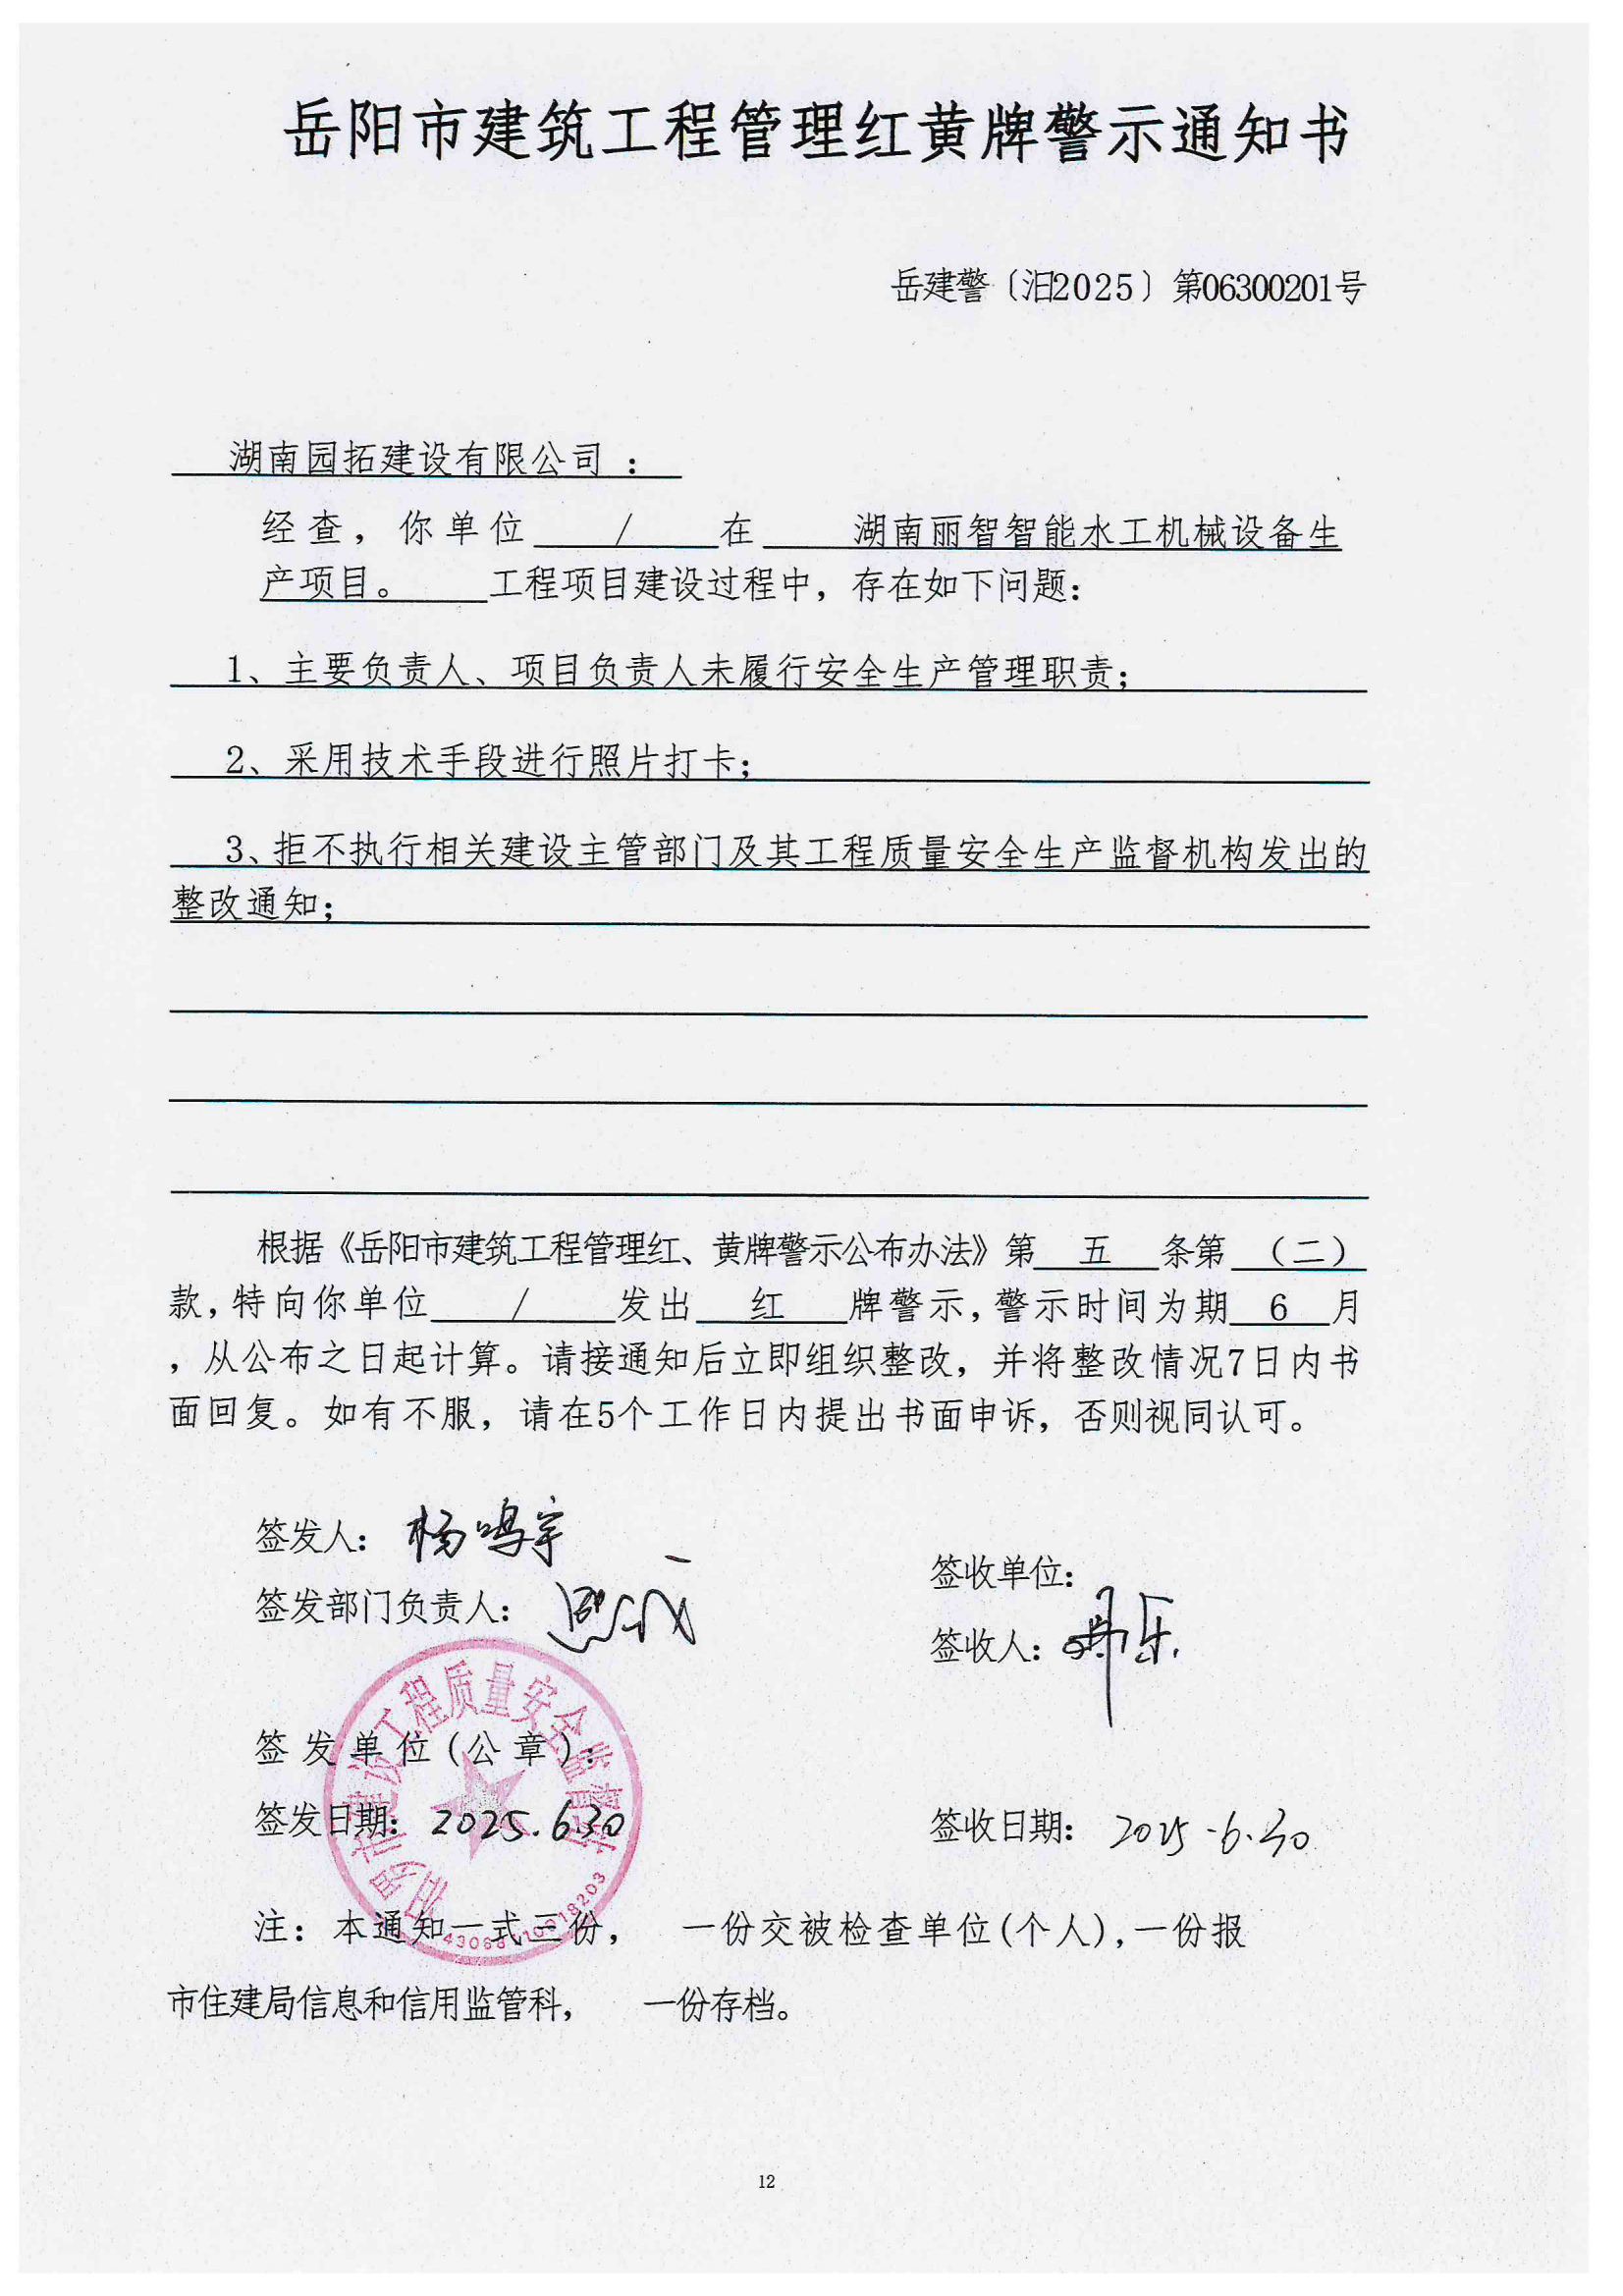 岳阳市建筑工程管理红黄牌警示通知书
岳建警〔汨2025〕第06300201号
湖南园拓建设有限公司：
经查，你单位 / 在 湖南丽智智能水工机械设备生
产项目。 工程项目建设过程中，存在如下问题：
1、主要负责人、项目负责人未履行安全生产管理职责；
2、采用技术手段进行照片打卡；
3、拒不执行相关建设主管部门及其工程质量安全生产监督机构发出的
整改通知；
根据《岳阳市建筑工程管理红、黄牌警示公布办法》第 五 条第 （二）
款，特向你单位 / 发出 红 牌警示，警示时间为期 6 月
，从公布之日起计算。请接通知后立即组织整改，并将整改情况7日内书
面回复。如有不服，请在5个工作日内提出书面申诉，否则视同认可。
签发人：杨鸣宇
签收单位：
签发部门负责人：
签收人：
签发单位(公章)：
签发日期：2025.6.30
签收日期：2025.6.30
注：本通知一式三份， 一份交被检查单位(个人)，一份报
市住建局信息和信用监管科， 一份存档。
12